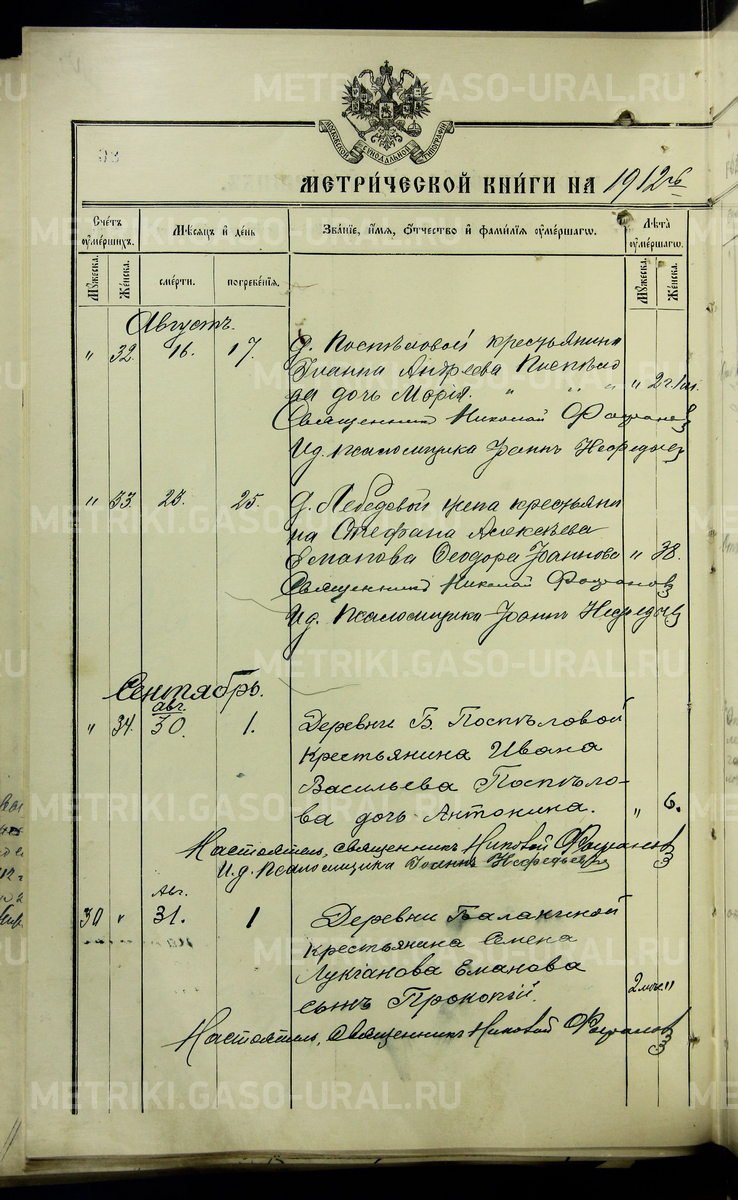 МОСКОВСКОЙ СѴНОДАЛЬНОЙ ТИПОГРАФІИ
МЕТРИ́ЧЕСКОЙ КНИ́ГИ НА 1912 г.
Счетъ ѹмершихъ.
Мѣсяцъ и день
Зва́ніе, и́мя, ѻ҆́тчество и фами́лія ѹме́ршагѡ.
Лѣта ѹмершагѡ.
Мѹжеска.
Женска.
сме́рти.
погребе́нія.
Мѹжеска.
Женска.
Августъ.
" 32. 16. 17. д. Поспѣловой крестьянина
Іоанна Андреева Поспѣло
ва дочь Марія. " " " " 2 г. 1 м.
Священникъ Николай
И.д. псаломщика Іоаннъ Нефедьев
" 33. 23. 25. Д. Лебедовой жена крестьяни
на Стефана Алексѣева
Еманова Ѳеодора Іоаннова " 38.
Священникъ Николай
И.д. Псаломщика Іоаннъ Нефедьев
Сентябрь.
авг.
" 34. 30. 1. Деревни Б. Поспѣловой
крестьянина Ивана
Васильева Поспѣло-
ва дочь Антонина. " 6.
Настоятель, священникъ Николай
И.д. Псаломщика Іоаннъ Нефедьев
Авг.
30 " 31. 1 Деревни Балакиной
крестьянина Семена
Лукіанова Еманова
сынъ Прокопій. 2 мѣс. "
Настоятель, священникъ Николай
METRIKI.GASO-URAL.RU